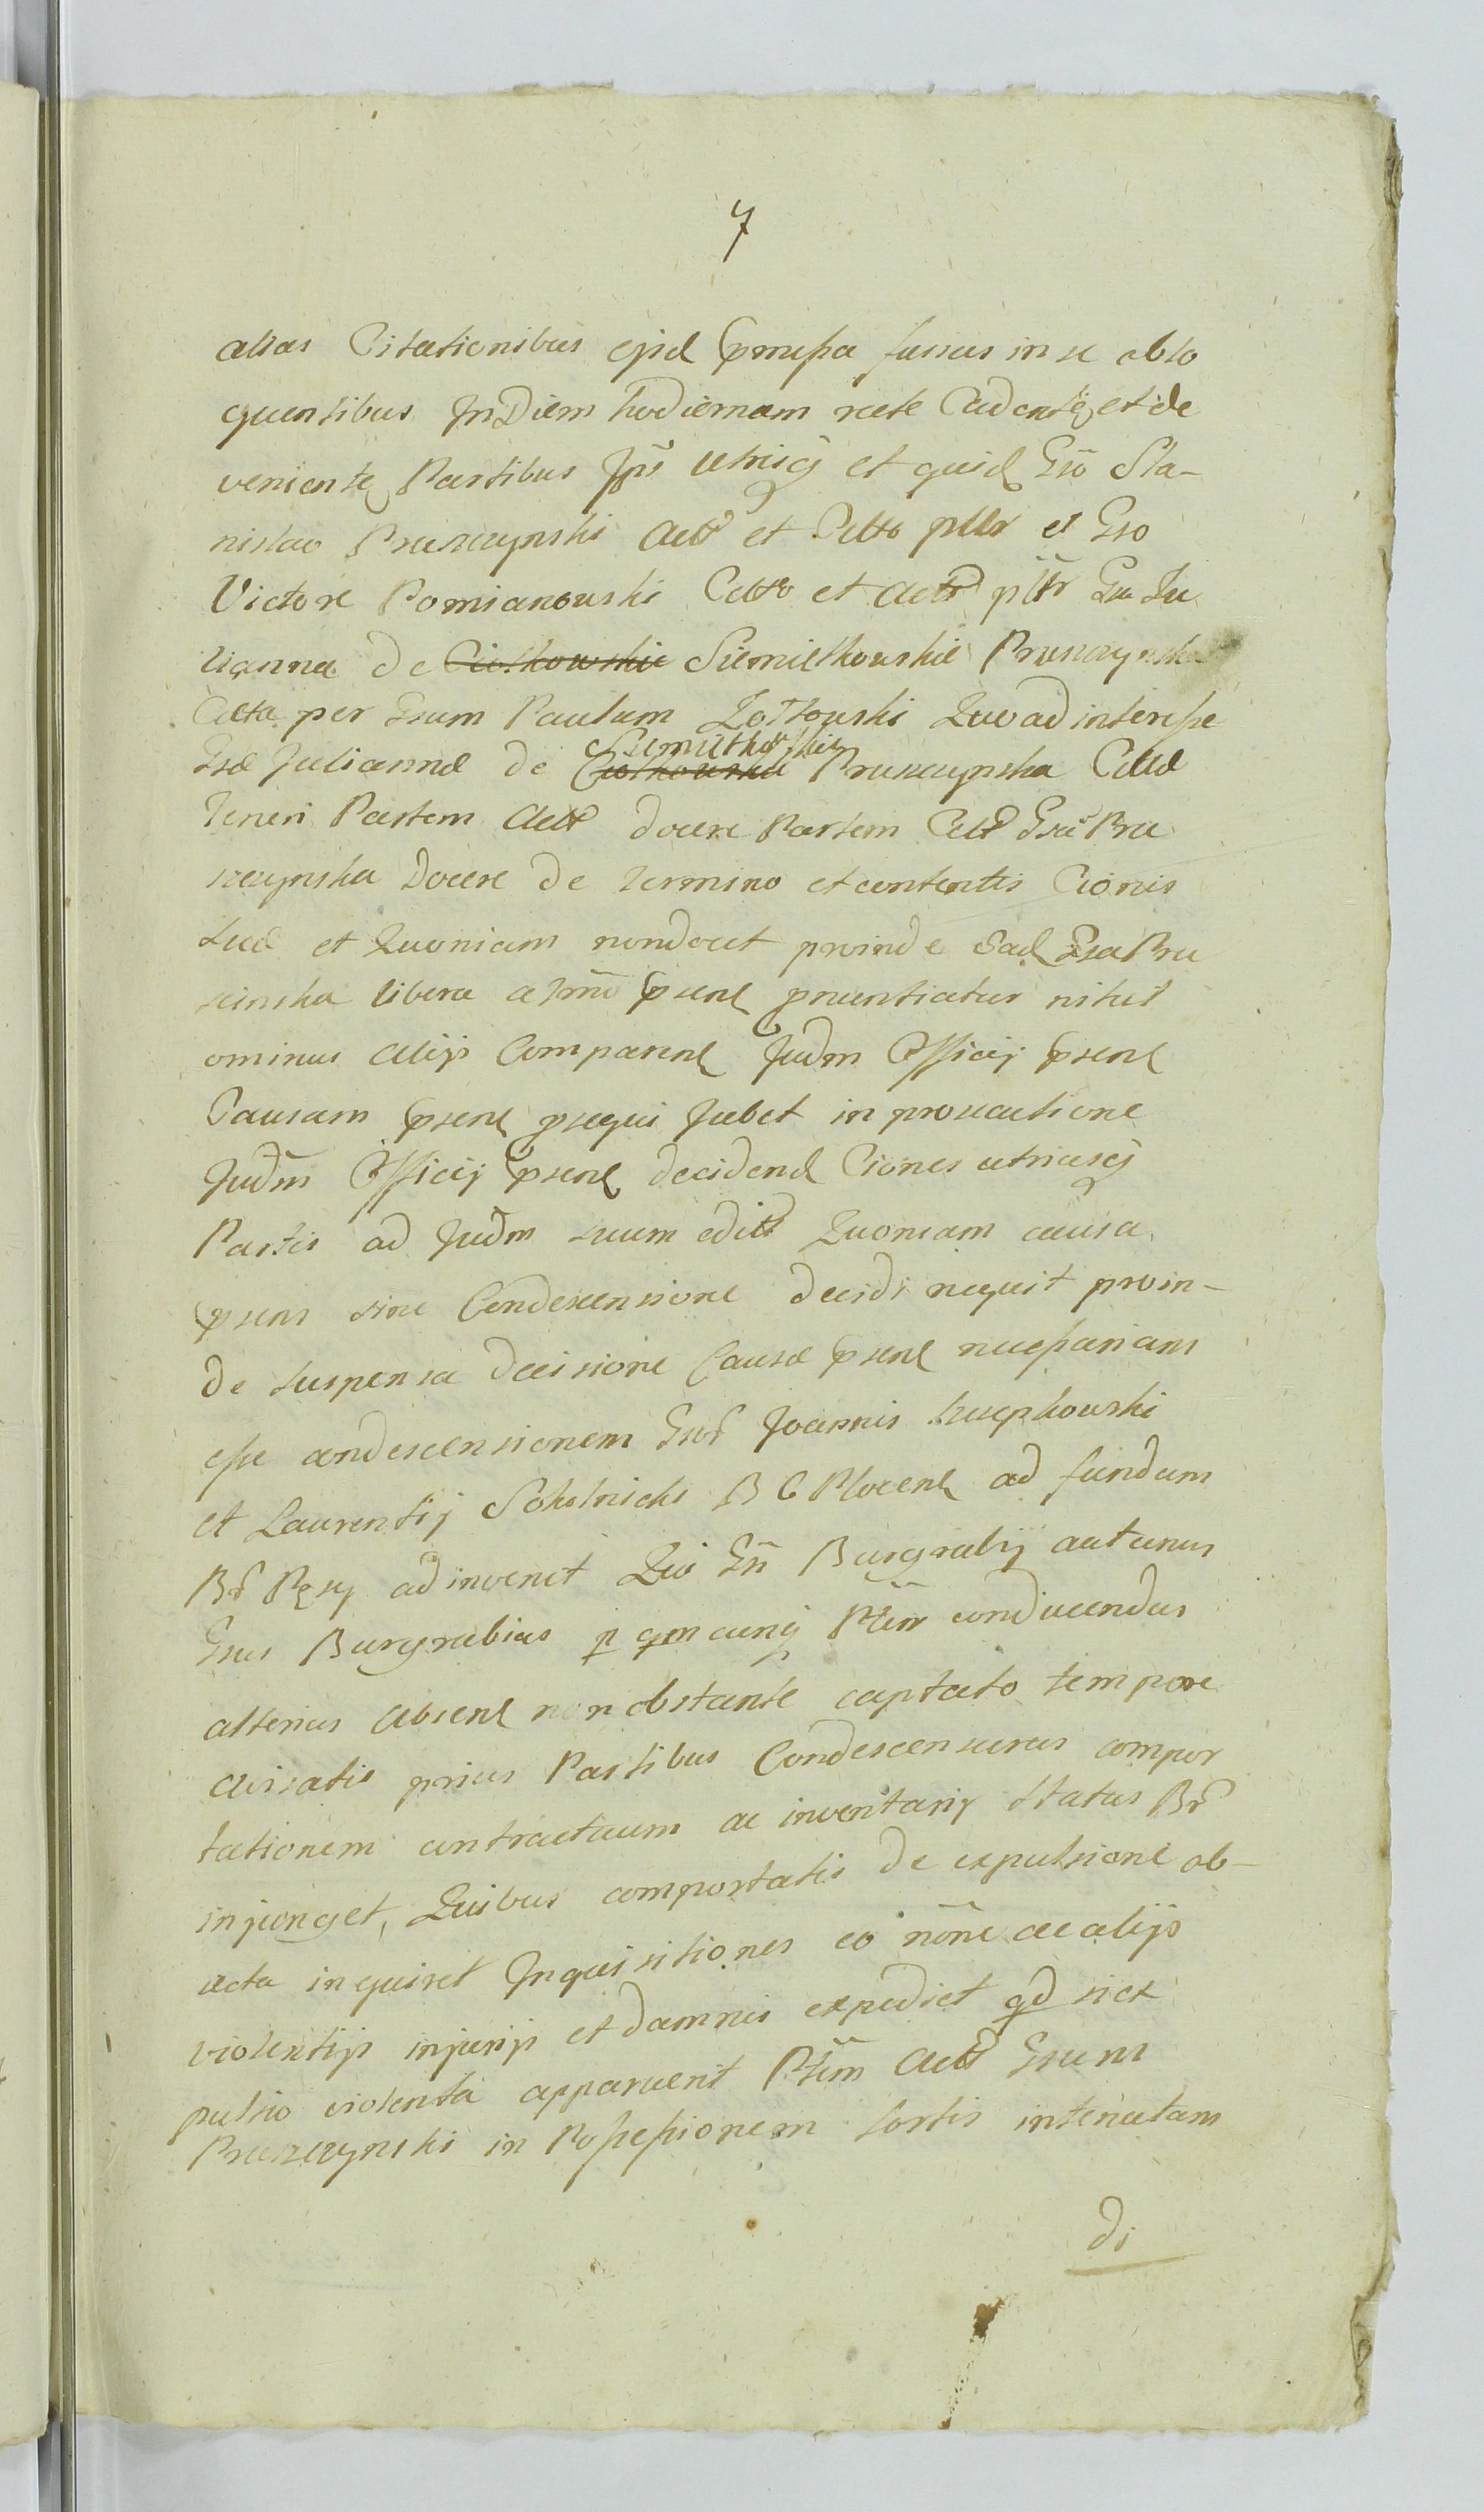 7
alias Citationibus ejsd praemissa fusius in se oblo
quentibus In Diem hodiernam recte Cadente et de
veniente Partibus Ipis utrisq et quid Gso Sta-
nislao Pruszczynski Actr et Citto pltr et Gso
Victore Pomianowski Citto et Actr pltr Gsa Ju
lianna de Ciolkowskie Siemiltkowskie Pruszczynska
Citta per Gsum Paulum Zottowski Quo ad interesse
Gsæ Juliannæ de Ciolkowskie Siemiltkowskie Pruszczynska Cittæ
Teneri Partem Actr docere Partem Citt Gsæ Pru
szczynska Docere de termino et contentis Cionis
suæ et Quoniam non docet proinde Ead Gsa Pru
scinska libera a Trno psen pnuntiatur nihil
ominus alijs Comparen Judm Officij psen
Causam psen psequi Jubet in prosecutione
Judm Officij psen decidend Ciones utriusq
Partis ad Judm suum edit Quoniam causa
psens sine Condescensione decidi nequit proin-
de suspensa decisione Causæ psen necessariam
esse condescensionem Gsor Joannis Szczepkowski
et Laurentij Sokolnicki B C Plocen ad fundum
Br adinvenit Qui Gsi Burgrabij aut unus
Gsus Burgrabius p qmcunq Ptem conducendus
alterius absen non obstante captato tempore
avisatis prius Partibus Condescensurus compor
tationem contractuum ac inventarij status Br
injunget, Quibus comportatis de expulsione ob-
acta inquiret Inquisitiones eo noñe ac alijs
violentijs injurijs et damnis expediet qd si ex
pulsio violenta apparuerit Ptem Actr Gsum
Pruszczynski in Possessionem sortis intenutam
di